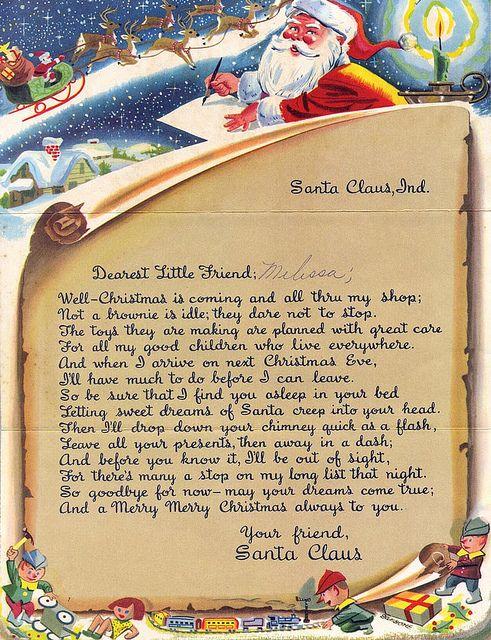 Santa Claus, Ind.
Dearest Little Friend; Melissa;
Well-Christmas is coming and all thru my shop;
Not a brownie is idle; they dare not to stop.
The toys they are making are planned with great care
For all my good children who live everywhere.
And when I arrive on next Christmas Eve,
I'll have much to do before I can leave.
So be sure that I find you asleep in your bed
Letting sweet dreams of Santa creep into your head.
Then I'll drop down your chimney quick as a flash,
Leave all your presents, then away in a dash;
And before you know it, I'll be out of sight,
For there's many a stop on my long list that night.
So goodbye for now-may your dreams come true;
And a Merry Merry Christmas always to you.
Your friend,
Santa Claus